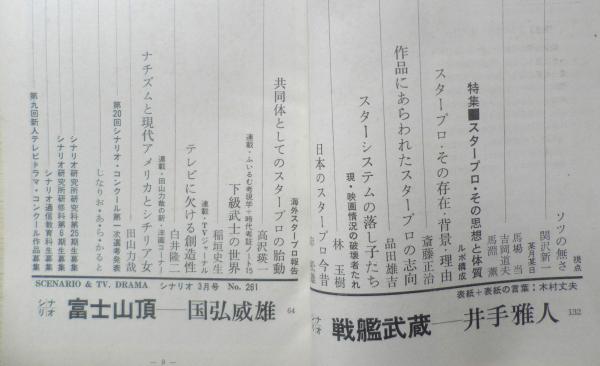 視点
ソツの無さ
関沢新一
某月某日
馬場 当
吉岡道夫
馬淵 薫
特集■スタープロ・その思想と体質
ルポ構成
スタープロ・その存在・背景・理由
斎藤正治
作品にあらわれたスタープロの志向
品田雄吉
スターシステムの落し子たち
現・映画情況の破壊者たれ
林 玉樹
日本のスタープロ今昔
海外スタープロ報告
共同体としてのスタープロの胎動
高沢瑛一
連載・ふぃるむ考現学+時代考証ノート15
下級武士の世界
稲垣史生
連載・TVジャーナル
テレビに欠ける創造性
白井隆二
連載・田山力哉の新・洋画コーナー
ナチズムと現代アメリカとシチリア女
田山力哉
第20回シナリオ・コンクール第一次選考発表
しなりお・あ・ら・かると
シナリオ研究所研究科第25期生募集
シナリオ研究所研修科第6期生募集
シナリオ通信教育科生募集
第九回新人テレビドラマ・コンクール作品募集
表紙+表紙の言葉:木村文夫
SCENARIO & TV. DRAMA シナリオ 3月号 No. 261
シナリオ 戦艦武蔵──井手雅人 132
シナリオ 富士山頂──国弘威雄 64
― 9 ―